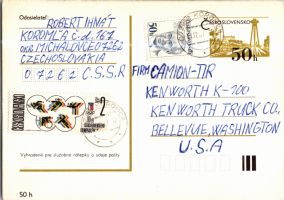 Odosielateľ
ROBERT IHNÁT
KOROMĽA č.d. 167
OKR. MICHALOVCE 07262
CZECHOSLOVAKIA
07262 C.S.S.R
ČESKOSLOVENSKO
50h
FIRM CAMION-TIR
KENWORTH K-100
KENWORTH TRUCK CO.
BELLEVUE, WASHINGTON
U.S.A
2
Vyhradené pre služobné nálepky a údaje pošty
50 h